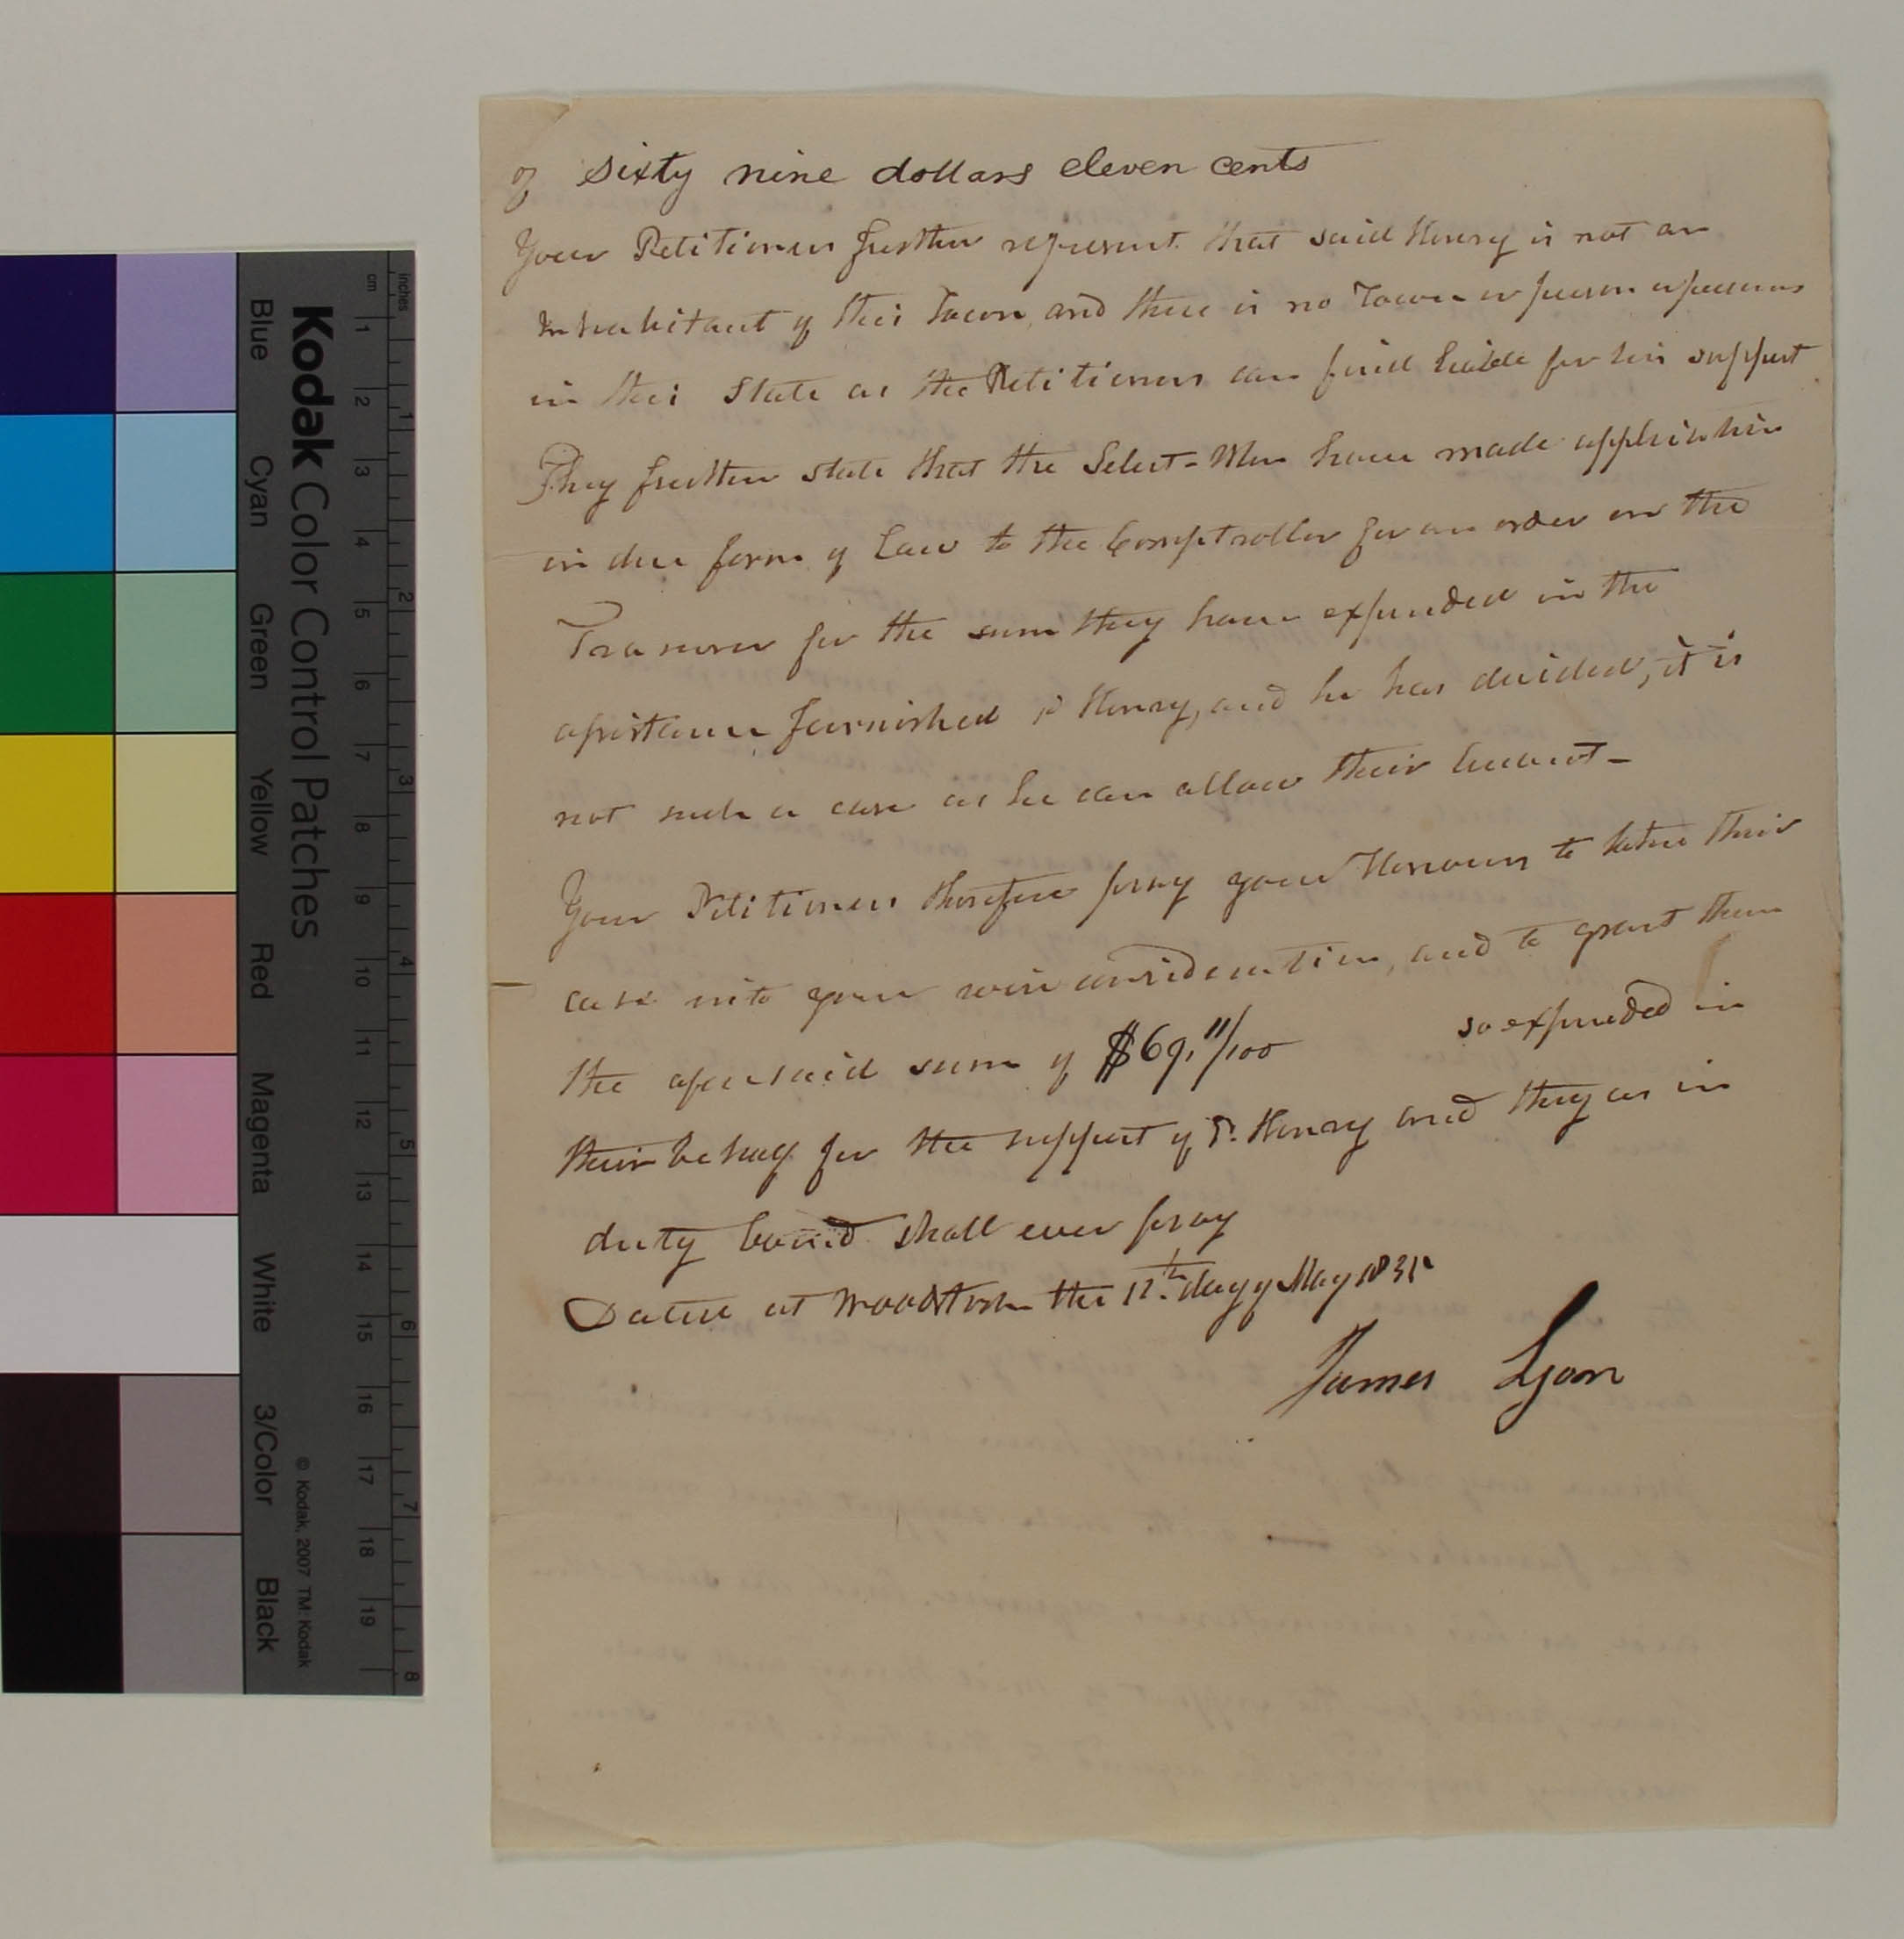 of Sixty nine dollars eleven cents
Your Petitioners further represent that said Henry is not an
Inhabitant of this Town and there is no Town or person or persons
in this State as the Petitioners can find liable for his support
They further state that the Select-Men have made application
in due form of Law to the Comptroller for an order on the
Treasurer for the sum they have expended in the
assistance furnished sd Henry, and he has decided, it is
not such a case as he can allow their account-
Your Petitioners therefore pray your Honours to take their
case into your wise consideration, and to grant them
the aforesaid sum of $69,11/100 so expended in
their behalf for the support of sd. Henry and they as in
duty bound shall ever pray
Dated at Woodstock the 12th. day of May 1831
James Lyon
Kodak Color Control Patches
Blue Cyan Green Yellow Red Magenta White 3/Color Black
© Kodak, 2007 TM: Kodak
inches 1 2 3 4 5 6 7 8
cm 1 2 3 4 5 6 7 8 9 10 11 12 13 14 15 16 17 18 19